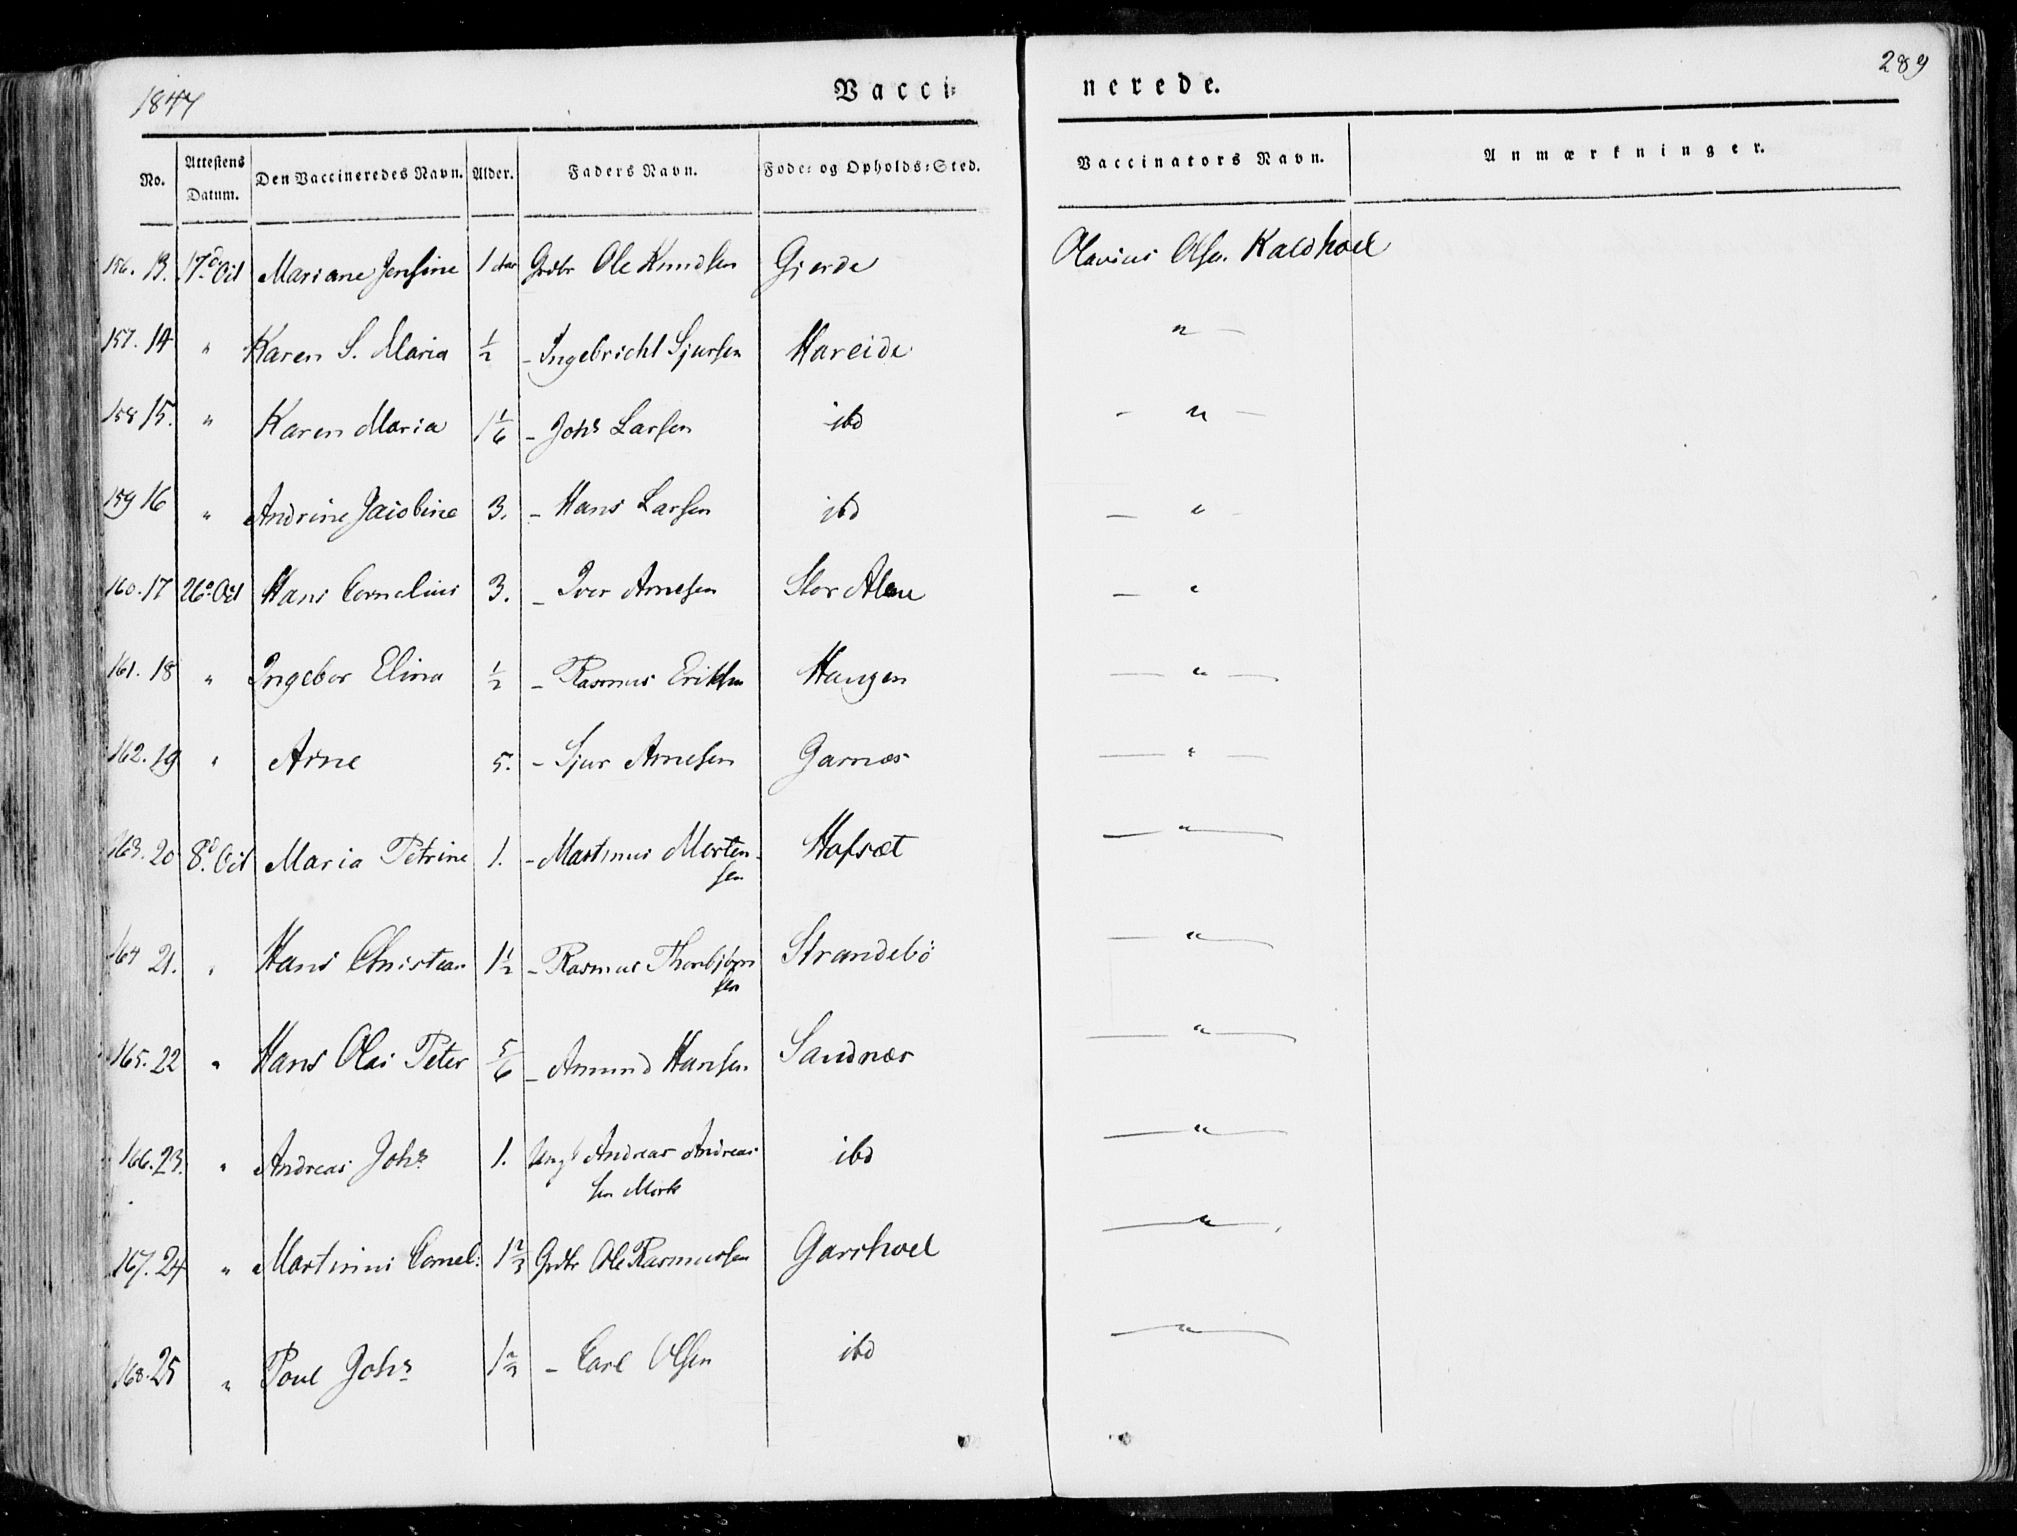 1847 Vacci- nerede. 289
No. Attestens Datum. Den Vaccineredes Navn. Alder. Faders Navn. Føde- og Opholds-Sted. Vaccinators Navn. Anmærkninger.
156. 13. 17d Oct Mariane Jensine 1 Aar Grdbr Ole Knudsen Gjerde Olavius Olsen Kaldhoel
157. 14 " Karen S. Maria 1/2 - Ingebricht Sjursen Hareide " -
158 15. " Karen Maria 1 1/6 - Johs Larsen ibd - " -
159 16 " Andrine Jacobine 3. - Hans Larsen ibd - " -
160. 17 26d Oct Hans Cornelius 3. - Iver Arnesen Stor Alme - "
161. 18 " Ingebor Elina 1/2 - Rasmus Eriksen Haugen - " -
162. 19 " Arne 5. - Sjur Arnesen Garnæs - " -
163. 20 8d Oct Maria Petrine 1. - Martinus Morten- Hofsæt - " -
sen
164 21. " Hans Christian 1 1/2 - Rasmus Thorbjørn Strandebö - " -
sen
165. 22 " Hans Olai Peter 5/6 - Amund Hansen Sandnær - " -
166. 23. " Andreas Johs 1. Ungk Andreas Andreas ibd - " -
sen Mork
167. 24 " Martinus Cornel: 1 2/3 Grdbr Ole Rasmussen Garshoel - " -
168. 25 " Poul Johs 1 2/3 - Carl Olsen ibd - " -